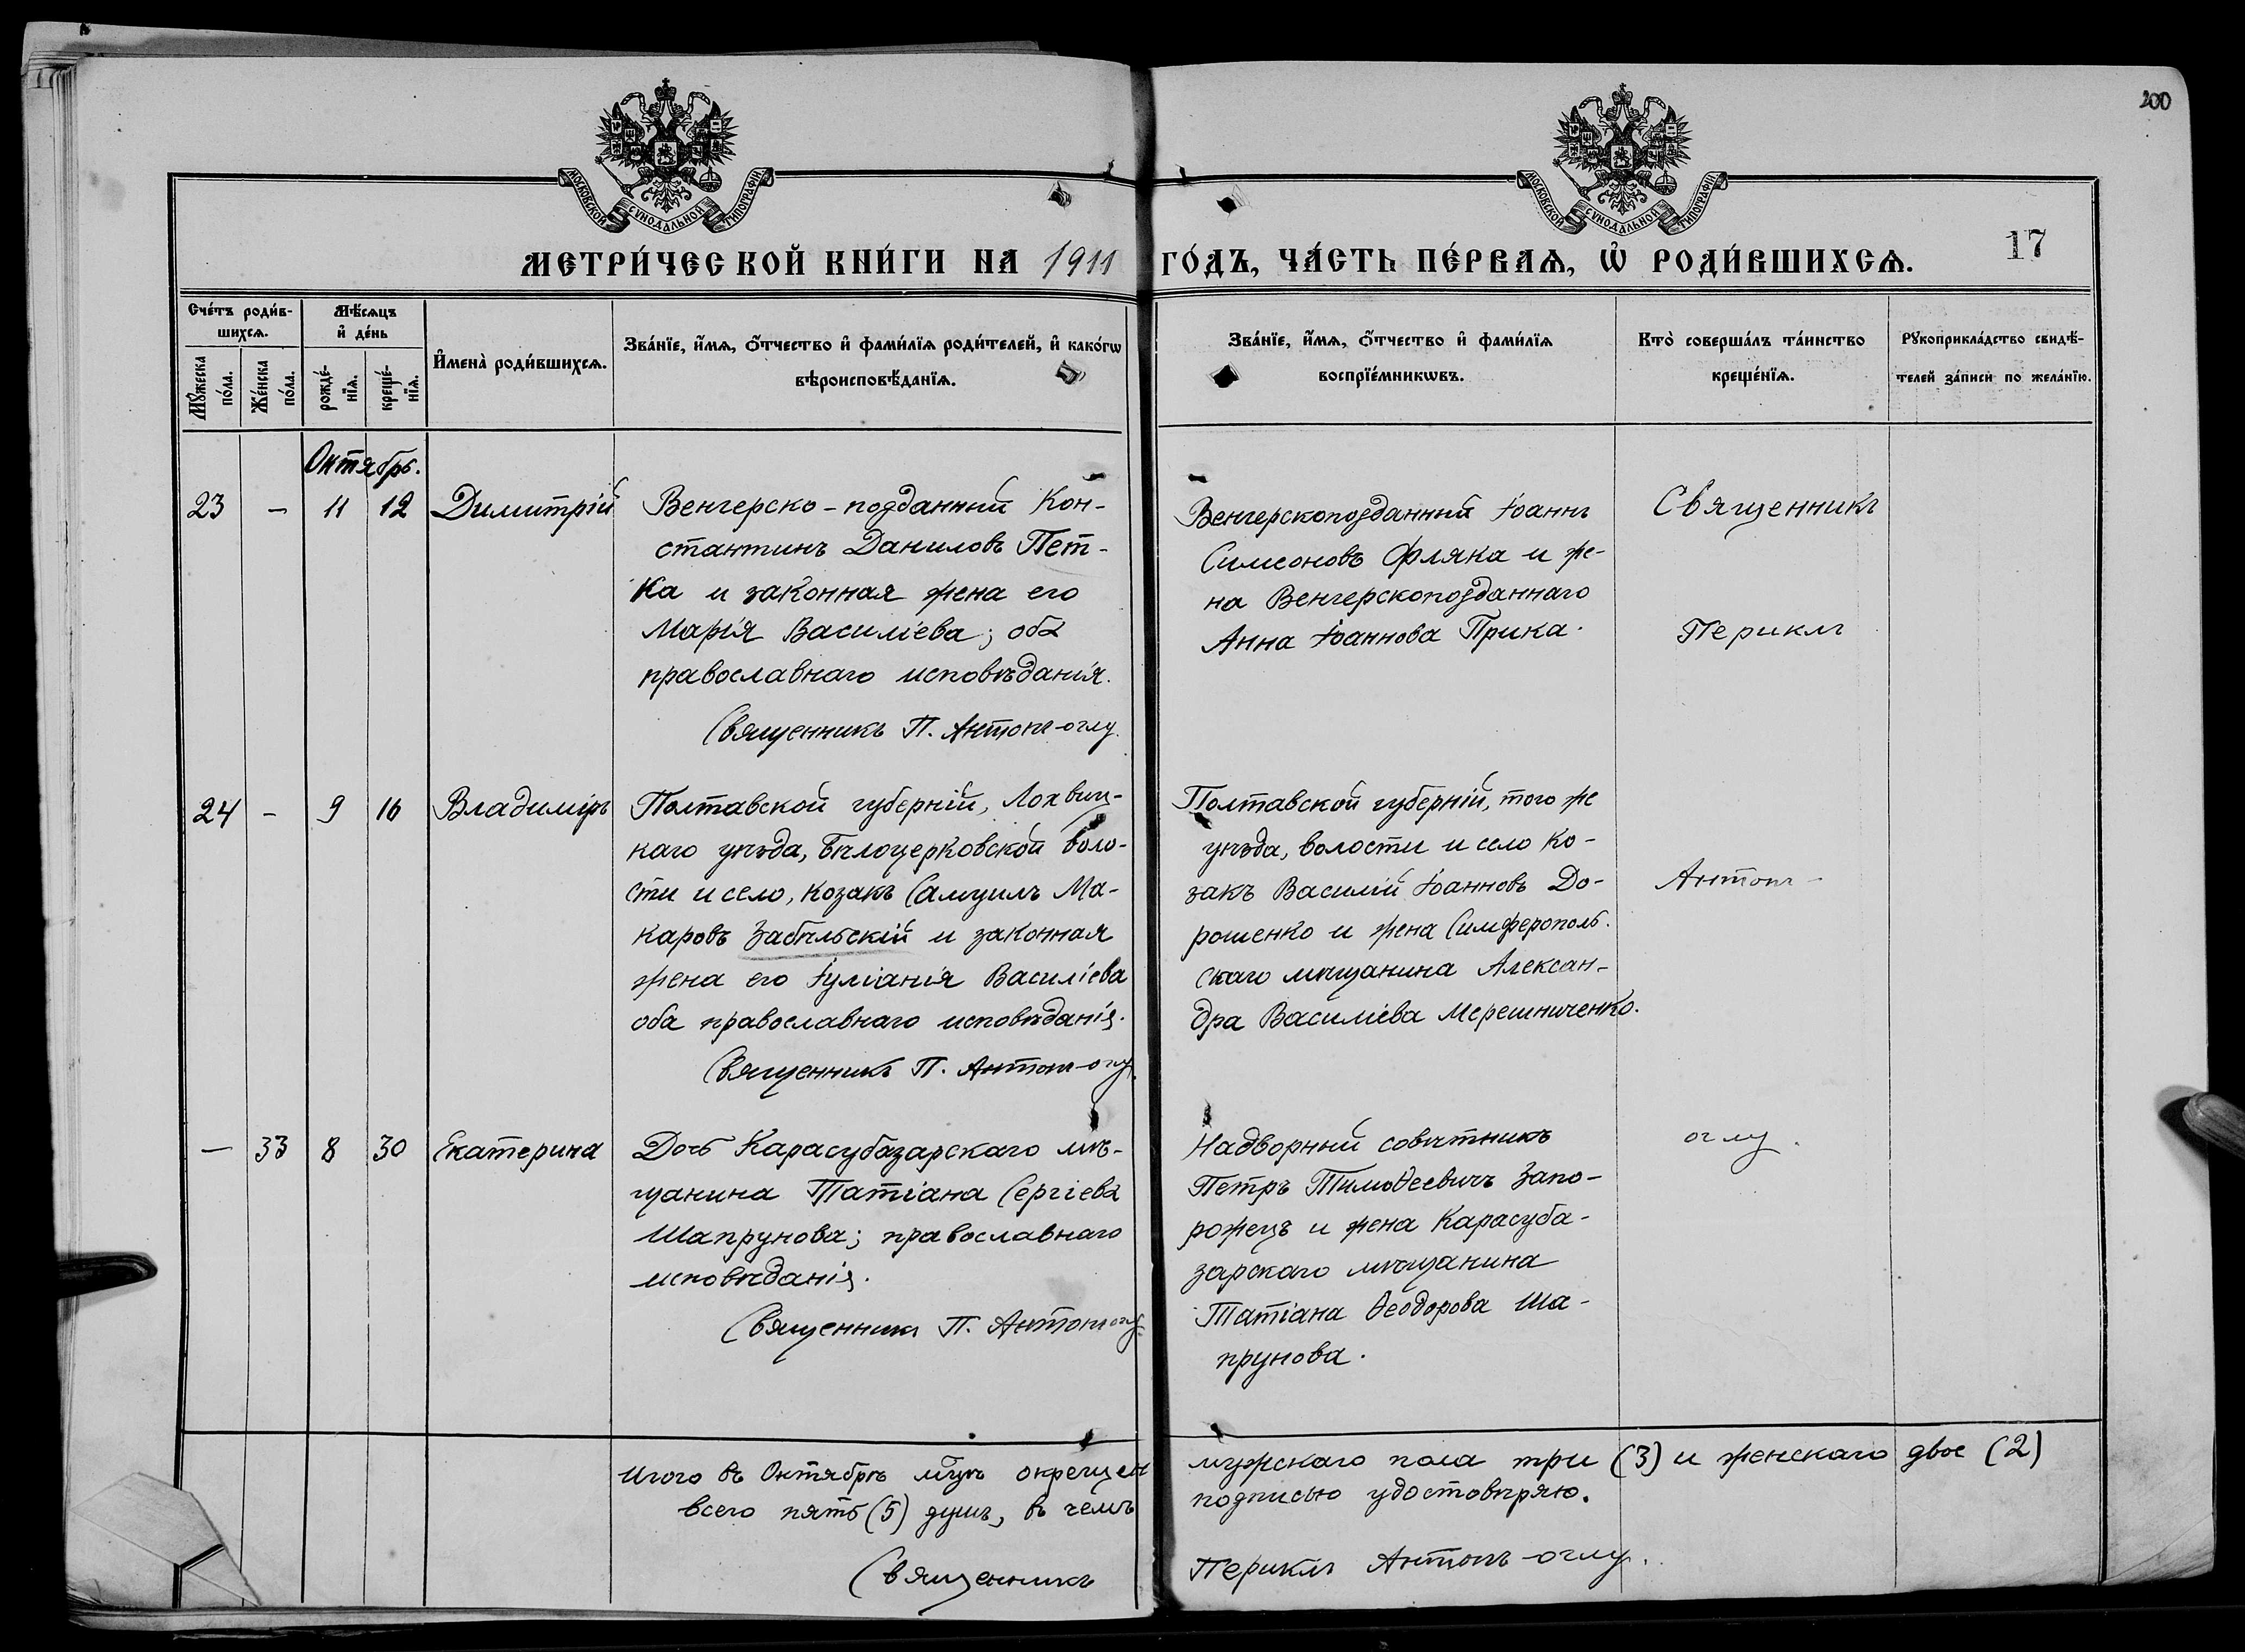 200
МОСКОВСКОЙ СѴНОДАЛЬНОЙ ТИПОГРАФІИ
МОСКОВСКОЙ СѴНОДАЛЬНОЙ ТИПОГРАФІИ
МЕТРИ́ЧЕСКОЙ КНИ́ГИ НА 1911 ГО́ДЪ, ЧА́СТЬ ПЕ́РВАѦ, Ѡ҆ РОДИ́ВШИХСѦ.
17
Сче́тъ роди́в-
шихсѧ.
Мꙋ́жеска
по́ла.
Же́нска
по́ла.
Мѣ́сѧцъ
и҆ де́нь
рожде́-
нїѧ.
креще́-
нїѧ.
И҆мена̀ роди́вшихсѧ.
Зва́нїе, и҆́мѧ, ѻ҆́тчество и҆ фами́лїѧ роди́телей, и҆ како́гѡ
вѣроисповѣ́данїѧ.
Зва́нїе, и҆́мѧ, ѻ҆́тчество и҆ фами́лїѧ
воспрїе́мникѡвъ.
Кто̀ соверша́лъ та́инство
креще́нїѧ.
Рꙋкоприкла́дство свидѣ́-
телей за́писи по жела́нїю.
Октябрь.
23 – 11 12 Димитрій
Венгерско-подданный Кон-
стантинъ Даниловъ Пет-
ка и законная жена его
Марія Василіева; оба
православнаго исповѣданія.
Священникъ П. Антопъ-оглу.
Венгерскоподданный Іоаннъ
Симеоновъ Фляка и же-
на Венгерскоподданнаго
Анна Іоаннова Прика.
Священникъ
Периклъ
24 – 9 16 Владиміръ
Полтавской губерніи, Лохвиц-
каго уѣзда, Бѣлоцерковской воло-
сти и село, козакъ Самуилъ Ма-
каровъ Забѣльскій и законная
жена его Іуліанія Василіева
оба православнаго исповѣданія.
Священникъ П. Антопъ-оглу.
Полтавской губерніи, того же
уѣзда, волости и село ко-
закъ Василій Іоанновъ До-
рошенко и жена Симферополь-
скаго мѣщанина Алексан-
дра Василіева Мерешниченко.
Антопъ-
– 33 8 30 Екатерина
Дочь Карасубазарскаго мѣ-
щанина Татіана Сергіева
Шапрунова; православнаго
исповѣданія.
Священникъ П. Антопъ оглу
Надворный совѣтникъ
Петръ Тимоѳеевичъ Запо-
рожецъ и жена Карасуба-
зарскаго мѣщанина
Татіана Ѳеодорова Ша-
прунова.
оглу.
Итого въ Октябрѣ м-цѣ окрещен мужскаго пола три (3) и женскаго двое (2)
всего пять (5) душъ, въ чемъ подписью удостовѣряю.
Священникъ Периклъ Антопъ-оглу.